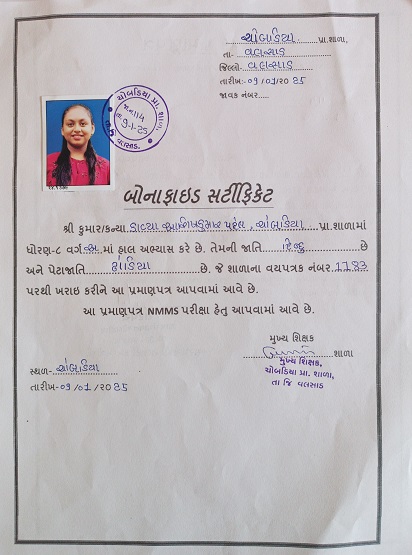 ચોબડિયા પ્રા.શાળા,
તા- વલસાડ
જિલ્લો- વલસાડ
તારીખ:-૦૧/૦૧/૨૦ 25
જાવક નંબર.....
ચોબડિયા પ્રા. શાળા,
તા. 9-1-25
વલસાડ.
બોનાફાઇડ સર્ટીફિકેટ
શ્રી કુમાર/કન્યા કાવ્યા પટેલ, ચોબડિયા પ્રા.શાળામાં
ધોરણ-૮ વર્ગ અ માં હાલ અભ્યાસ કરે છે. તેમની જાતિ હિન્દુ છે
અને પેટાજાતિ છે. જે શાળાના વયપત્રક નંબર 1783
પરથી ખરાઇ કરીને આ પ્રમાણપત્ર આપવામાં આવે છે.
આ પ્રમાણપત્ર NMMS પરીક્ષા હેતુ આપવામાં આવે છે.
મુખ્ય શિક્ષક
શાળા
મુખ્ય શિક્ષક,
ચોબડિયા પ્રા. શાળા,
તા જિ વલસાડ
સ્થળ- ચોબડિયા
તારીખ-૦૧/૦૧/૨૦25